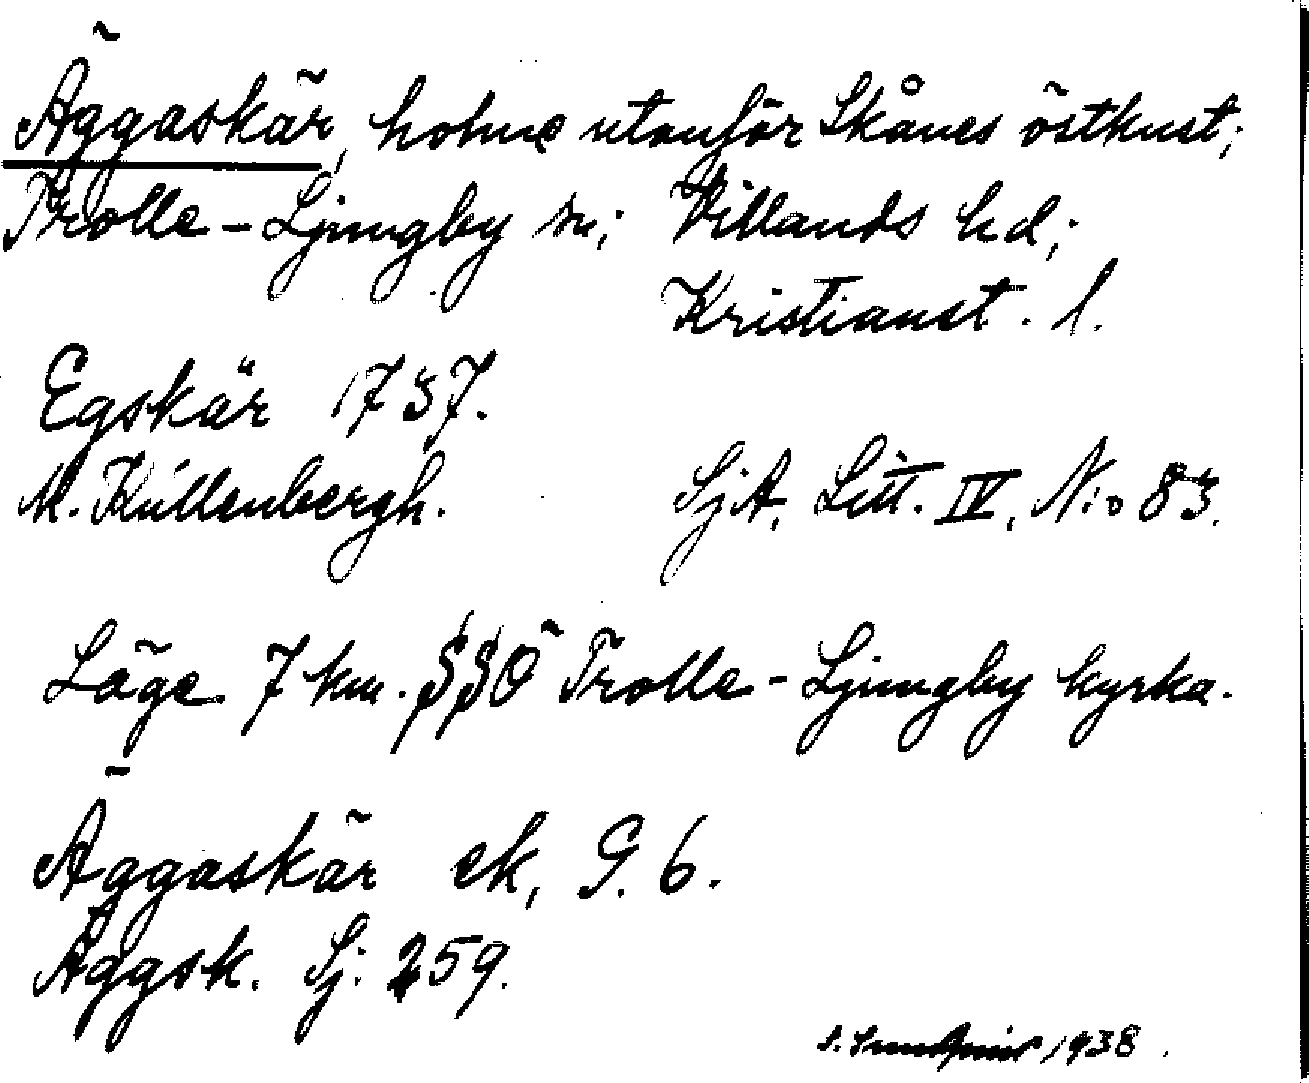 Äggaskär, holme utanför Skånes östkust;
Trolle-Ljungby sn; Villands hd;
Kristianst. l.
Egskär 1737.
M. Kullenbergh. SjA, Litt. IV, N:o 83.
Läge 7 km. SSÖ Trolle-Ljungby kyrka.
Äggaskär ek, G. 6.
Äggsk. Sj. 259.
1938.